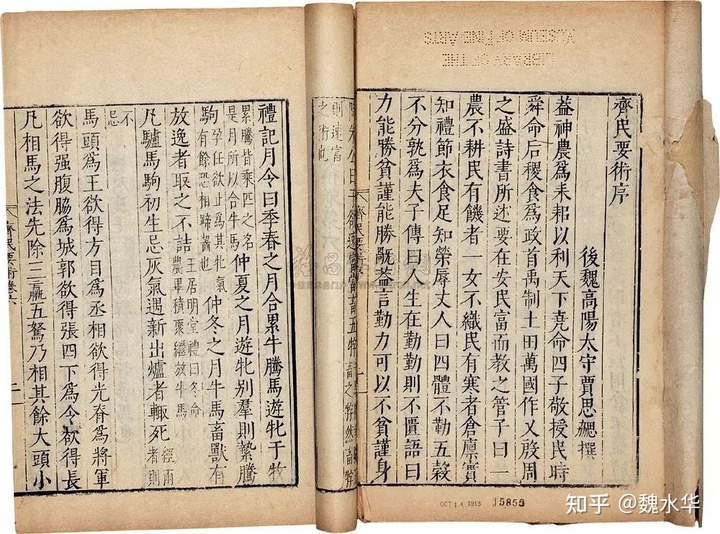 齊民要術序
後魏高陽太守賈思勰撰
葢神農爲耒耜以利天下堯命四子敬授民時
舜命后稷食爲政首禹制土田萬國作乂殷周
之盛詩書所述要在安民富而教之管子曰一
農不耕民有饑者一女不織民有寒者倉廩實
知禮節衣食足知榮辱丈人曰四體不勤五穀
不分孰爲夫子傳曰人生在勤勤則不匱語曰
力能勝貧謹能勝旤葢言勤力可以不貧謹身
齊民要術
則速富
之術也
禮記月令曰季春之月合累牛騰馬遊牝于牧
累騰皆乘匹之名是月所以合牛馬仲夏之月遊牝别羣則縶騰
駒孕任欲止爲其牝氣有餘恐相蹄齧也仲冬之月牛馬畜獸有
放逸者取之不詰王居明堂禮曰冬命農畢積聚繼放牛馬
凡驢馬駒初生忌灰氣遇新出爐者輒死經雨者則不忌
馬頭爲王欲得方目爲丞相欲得光脊爲將軍
欲得强腹脇爲城郭欲得張四下爲令欲得長
凡相馬之法先除三羸五駑乃相其餘大頭小
齊民要術卷六
LIBRARY OF THE
MUSEUM OF FINE ARTS
OCT 14 1915
J5855
知乎 @魏水华